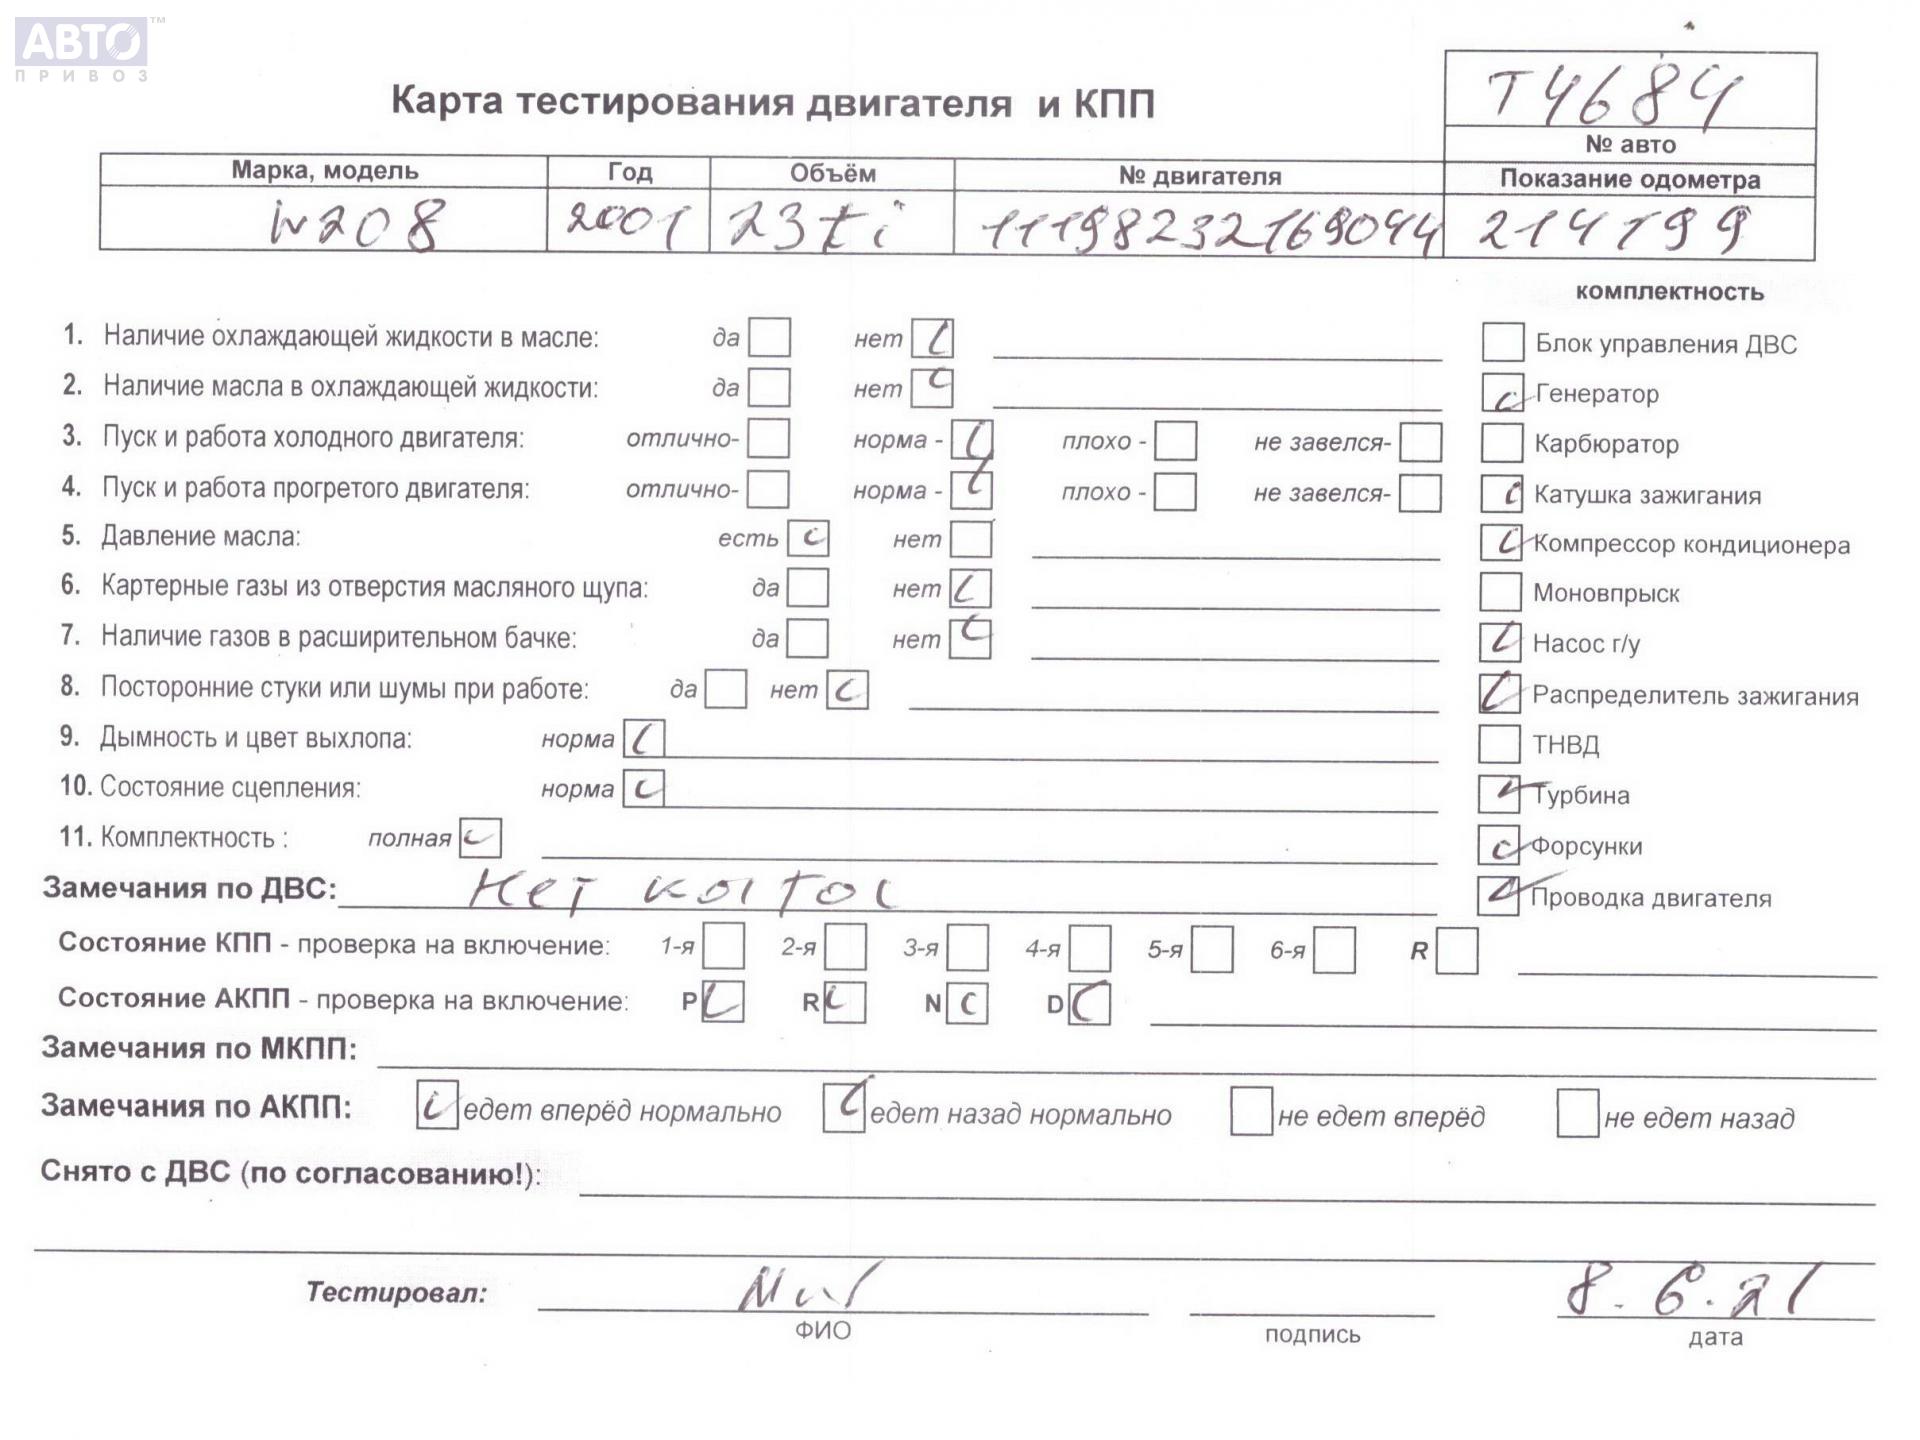 АВТО™
ПРИВОЗ
Карта тестирования двигателя и КПП
T4684
№ авто
Марка, модель Год Объём № двигателя Показание одометра
W208 2001 23ti 11198232169044 214199
комплектность
1. Наличие охлаждающей жидкости в масле: да нет
Блок управления ДВС
2. Наличие масла в охлаждающей жидкости: да нет
Генератор
3. Пуск и работа холодного двигателя: отлично- норма - плохо - не завелся-
Карбюратор
4. Пуск и работа прогретого двигателя: отлично- норма - плохо - не завелся-
Катушка зажигания
5. Давление масла: есть нет
Компрессор кондиционера
6. Картерные газы из отверстия масляного щупа: да нет
Моновпрыск
7. Наличие газов в расширительном бачке: да нет
Насос г/у
8. Посторонние стуки или шумы при работе: да нет
Распределитель зажигания
9. Дымность и цвет выхлопа: норма
ТНВД
10. Состояние сцепления: норма
Турбина
11. Комплектность : полная
Форсунки
Замечания по ДВС: Нет
Проводка двигателя
Состояние КПП - проверка на включение: 1-я 2-я 3-я 4-я 5-я 6-я R
Состояние АКПП - проверка на включение: P R N D
Замечания по МКПП:
Замечания по АКПП: едет вперёд нормально едет назад нормально не едет вперёд не едет назад
Снято с ДВС (по согласованию!):
Тестировал: 8.6.21
ФИО подпись дата